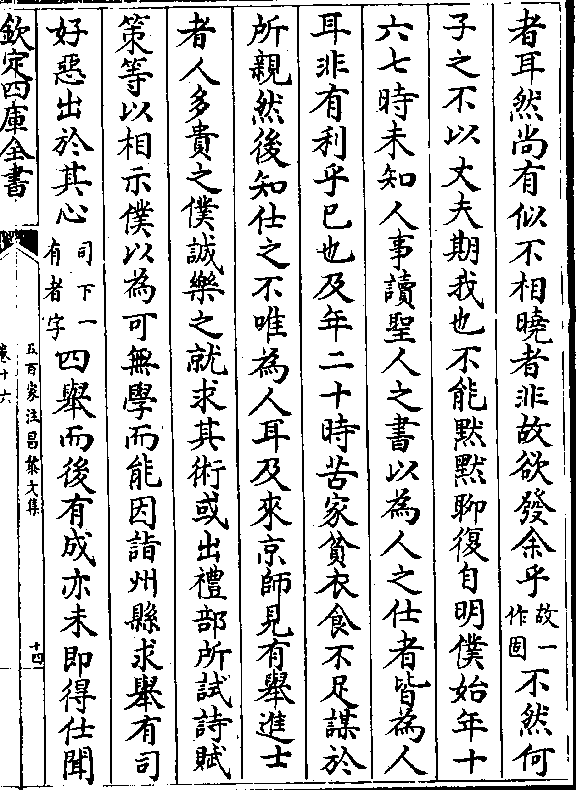 者耳然尚有似不相曉者非故欲發余乎故一作固不然何
子之不以丈夫期我也不能黙黙聊復自明僕始年十
六七時未知人事讀聖人之書以為人之仕者皆為人
耳非有利乎已也及年二十時苦家貧衣食不足謀於
所親然後知仕之不唯為人耳及來京師見有舉進士
者人多貴之僕誠樂之就求其術或出禮部所試詩賦
策等以相示僕以為可無學而能因詣州縣求舉有司
好惡出於其心司下一有者字四舉而後有成亦未即得仕聞
欽定四庫全書
五百家注昌黎文集
卷十六
十四